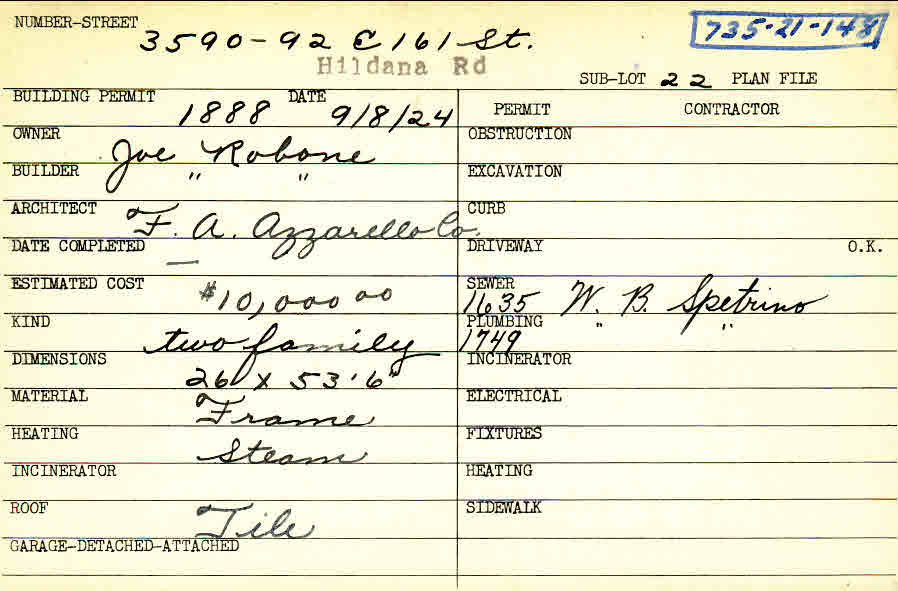 NUMBER-STREET 3590-92 E 161 St. 735-21-148
Hildana Rd
SUB-LOT 22 PLAN FILE
BUILDING PERMIT 1888 DATE 9/8/24 PERMIT CONTRACTOR
OWNER Joe Robone OBSTRUCTION
BUILDER " " EXCAVATION
ARCHITECT F. A. Azzarello Co. CURB
DATE COMPLETED — DRIVEWAY O.K.
ESTIMATED COST $10,000 00 SEWER 1635 W. B. Spetrino
KIND two family PLUMBING 1749 " "
DIMENSIONS 26 x 53'6" INCINERATOR
MATERIAL Frame ELECTRICAL
HEATING Steam FIXTURES
INCINERATOR HEATING
ROOF Tile SIDEWALK
GARAGE-DETACHED-ATTACHED